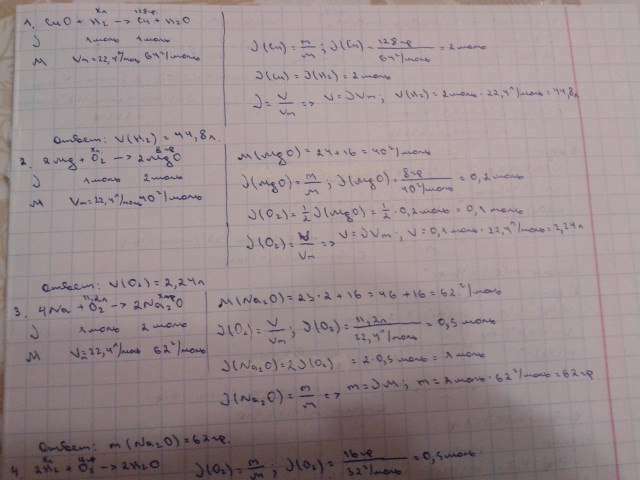 1. CuO + H₂ (xл) → Cu (128гр) + H₂O
ν 1 моль 1 моль
M Vm=22,4 л/моль 64 г/моль
ν(Cu) = m/M; ν(Cu) = 128гр / 64 г/моль = 2 моль
ν(Cu) = ν(H₂) = 2 моль
ν = V/Vm => V = νVm; V(H₂) = 2 моль · 22,4 л/моль = 44,8 л
Ответ: V(H₂) = 44,8 л.
2. 2Mg + O₂ (xл) → 2MgO (8 гр)
ν 1 моль 2 моль
M Vm=22,4 л/моль 40 г/моль
M(MgO) = 24+16 = 40 г/моль
ν(MgO) = m/M; ν(MgO) = 8гр / 40 г/моль = 0,2 моль
ν(O₂) = 1/2 ν(MgO) = 1/2 · 0,2 моль = 0,1 моль
ν(O₂) = V/Vm => V = νVm; V = 0,1 моль · 22,4 л/моль = 2,24 л
Ответ: V(O₂) = 2,24 л
3. 4Na + O₂ (11,2л) → 2Na₂O (xгр)
ν 1 моль 2 моль
M V=22,4 л/моль 62 г/моль
M(Na₂O) = 23·2 + 16 = 46 + 16 = 62 г/моль
ν(O₂) = V/Vm; ν(O₂) = 11,2л / 22,4 л/моль = 0,5 моль
ν(Na₂O) = 2ν(O₂) = 2 · 0,5 моль = 1 моль
ν(Na₂O) = m/M => m = νM; m = 1 моль · 62 г/моль = 62 гр
Ответ: m(Na₂O) = 62 гр.
4. 2H₂ (xл) + O₂ → 2H₂O ν(O₂) = m/M; ν(O₂) = 16гр / 32 г/моль = 0,5 моль